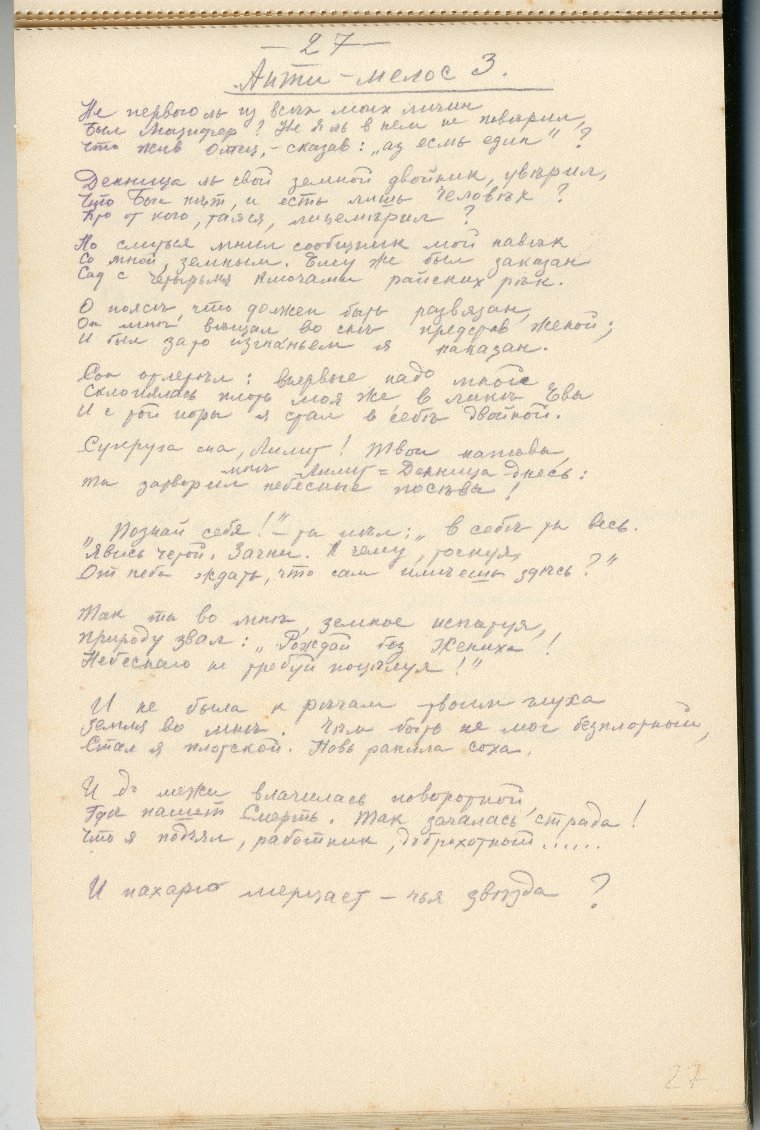 — 27 —
Анти-мелос 3.
Не первого ль из всѣхъ моих личин
Был Люцифер? Не я ль в нем не повѣрил,
Что жив Отец, – сказав: „аз есмь един"?
Денница ль свой земной двойник, увѣрил,
Что Бога нѣт, и есть лишь человѣк?
Кто от кого, таясь, лицемѣрил?
Но слиться мнил сообщник мой навѣк
Со мной, земным. Ему же был заказан
Сад с четырьмя ключами райских рѣк.
О поясѣ, что должен быть развязан,
Он мнѣ вѣщал во снѣ представ женой;
И был за то изгнаньем я наказан.
Сон отлетѣл: впервые надо мною
Склонялась плоть моя же, в ликѣ Евы
И с той поры я стал в себѣ двойной.
Супруга сна, Лилит! Твои напѣвы,
мнѣ Лилит = Денница днесь:
Ты затворил небесные посѣвы!
„Познай себя!" – ты пѣл: „в себѣ ты весь.
„Явись четой. Зачни. К чему, тоскуя,
От неба ждать, что сам имѣешь здѣсь?"
Так ты во мнѣ, земное испытуя,
Природу звал: „Рождай без Жениха!
Небеснаго не требуй поцѣлуя!"
И не была к рѣчам твоим глуха
Земля во мнѣ. Чѣм быть не мог безплотный,
Стал я плотской. Новь ранила соха,
И до межи влачилась поворотной,
Гдѣ пашет Смерть. Так зачалась страда!
Что я подъял, работник доброхотный.....
И пахарю мерцает – чья звѣзда?
27